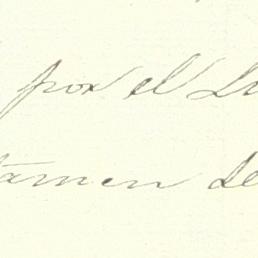 por el Lu
tamen de